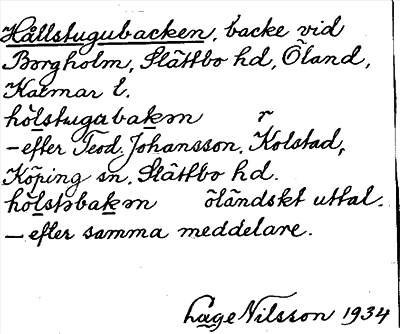 Hållstugubacken, backe vid
Borgholm, Slättbo hd, Öland,
Kalmar l.
hólstugubakən r
– efter Teod. Johansson, Kolstad,
Köping sn, Slättbo hd.
hólstəbakən öländskt uttal.
– efter samma meddelare.
Lage Nilsson 1934